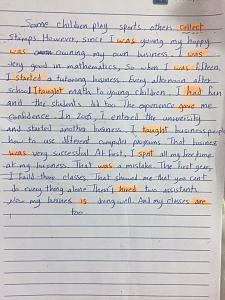 Some children play sports, others collect
stamps. However, since I was young my hoppy
was owning my own business. I was
very good in mathematics, So when I was fifteen,
I started a tutoring business. Every afternoon after
school I taught math to young children. I had fun
and the students did too. The experience gave me
confidence. In 2005, I entered the university
and started another business. I taught business people
how to use different computer programs. That business
was very successful. At first, I spnt all my free time
at my business. That was a mistake. The first year,
I faild three classes. That showed me that you can't
do every thing alone. Then I hired two assistants.
Now my business is doing well. And my classes are
too.